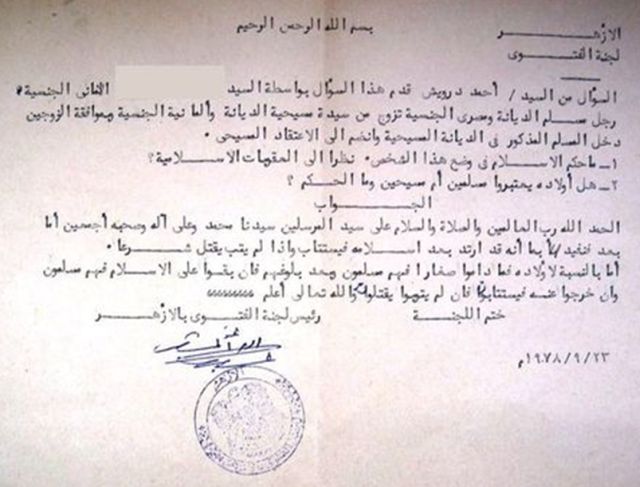 بسم الله الرحمن الرحيم
الازهر
لجنة الفتوى
السؤال من السيد / أحمد درويش قدم هذا السؤال بواسطة السيد الألمانى الجنسية
رجل مسلم الديانة ومصرى الجنسية تزوج من سيدة مسيحية الديانة وألمانية الجنسية وبموافقة الزوجين
دخل المسلم المذكور فى الديانة المسيحية وانضم الى الاعتقاد المسيحى .
١ــ ماحكم الاسلام فى وضع هذا الشخص . نظرا الى العقوبات الاسلامية ؟
٢ــ هل أولاده يعتبروا مسلمين أم مسيحين وما الحكم ؟
الجــواب
الحمد الله رب العالمين والصلاة والسلام على سيد المرسلين سيدنا محمد وعلى آله وصحبه أجمعين أما
بعد فنفيد بأنه قد ارتد بعد اسلامه فيستتاب واذا لم يتب يقتل شرعا .
أما بالنسبة لاولاده فما داموا صغارا فهم مسلمون وبعد بلوغهم فان بقوا على الاسلام فهم مسلمون
وان خرجوا عنه فيستتابوا فان لم يتوبوا يقتلوا والله تعالى أعلم
ختم اللجنة رئيس لجنة الفتوى بالازهر
١٩٧٨/٩/٢٣م